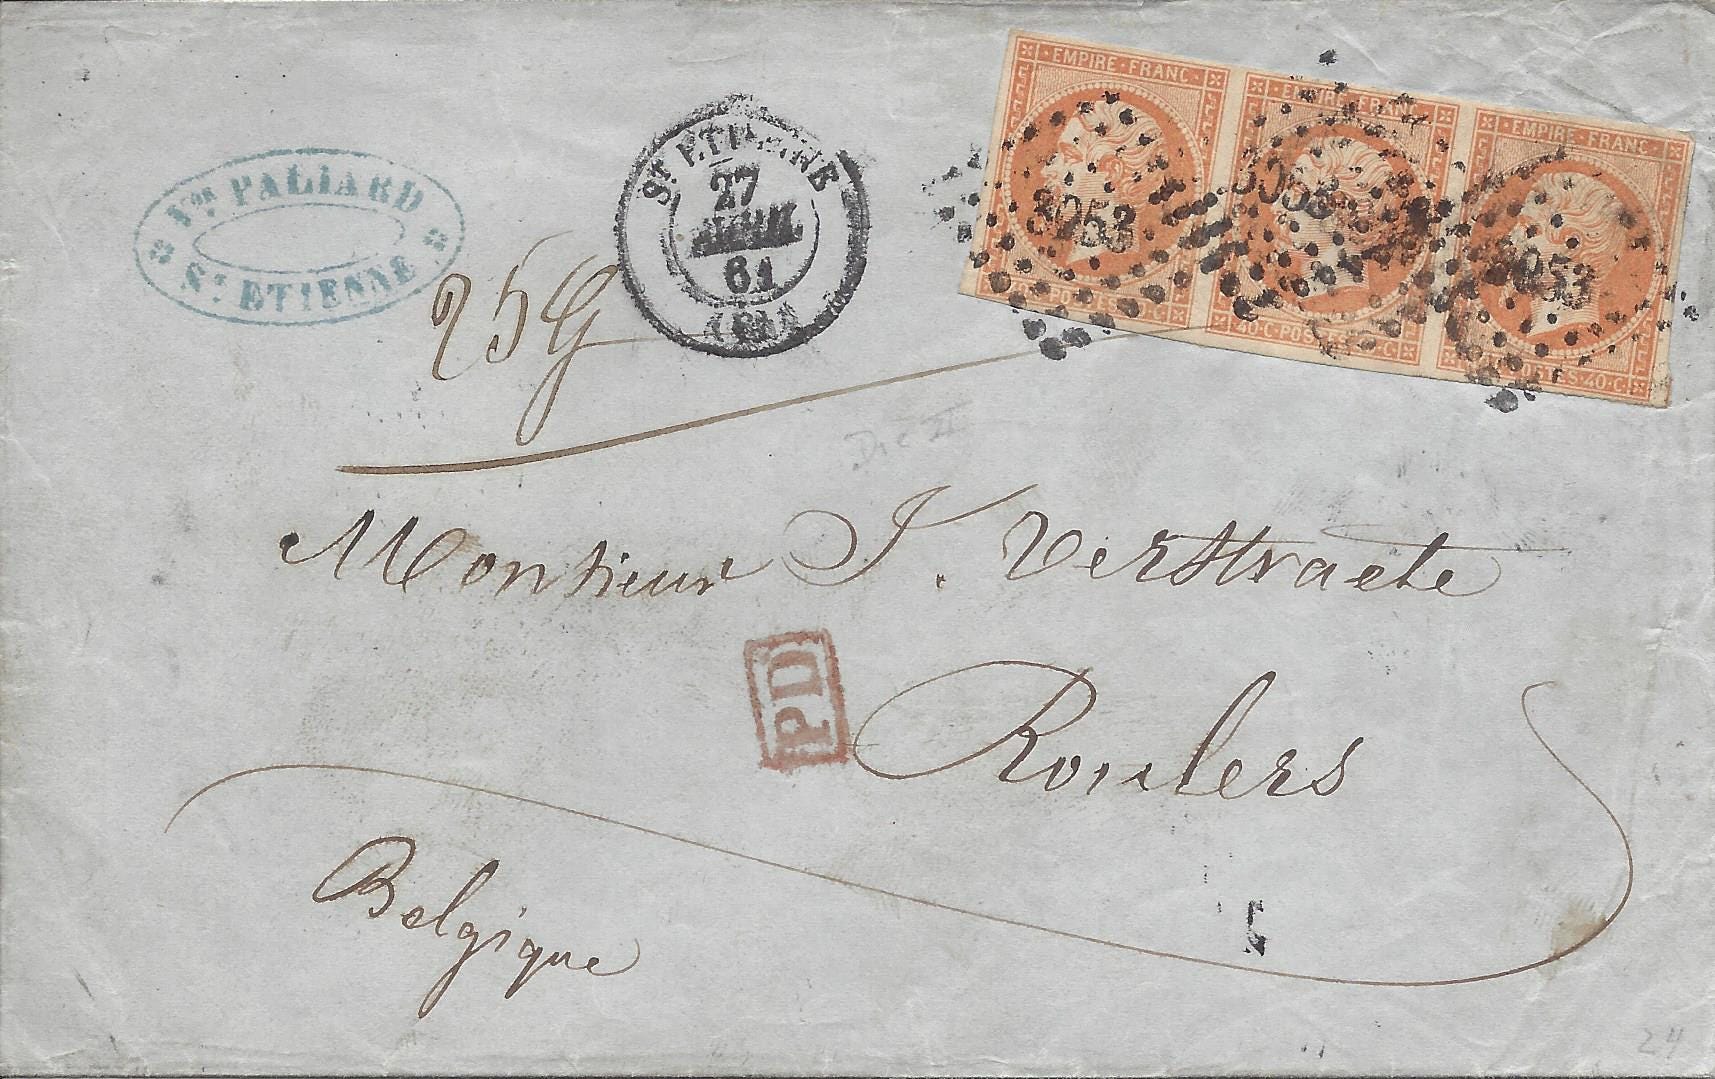 Vᵛᵉ PALIARD
Sᵗ ETIENNE
25 g
Sᵀ ETIENNE
27
AVRIL
61
EMPIRE · FRANC ·
EMPIRE · FRANC ·
EMPIRE · FRANC ·
3053
3053
3053
POSTES · 40 · C ·
40 · C · POSTES · 40 · C ·
POSTES · 40 · C ·
Die II
Monsieur J. Verstraete
PD
Roulers
Belgique
24